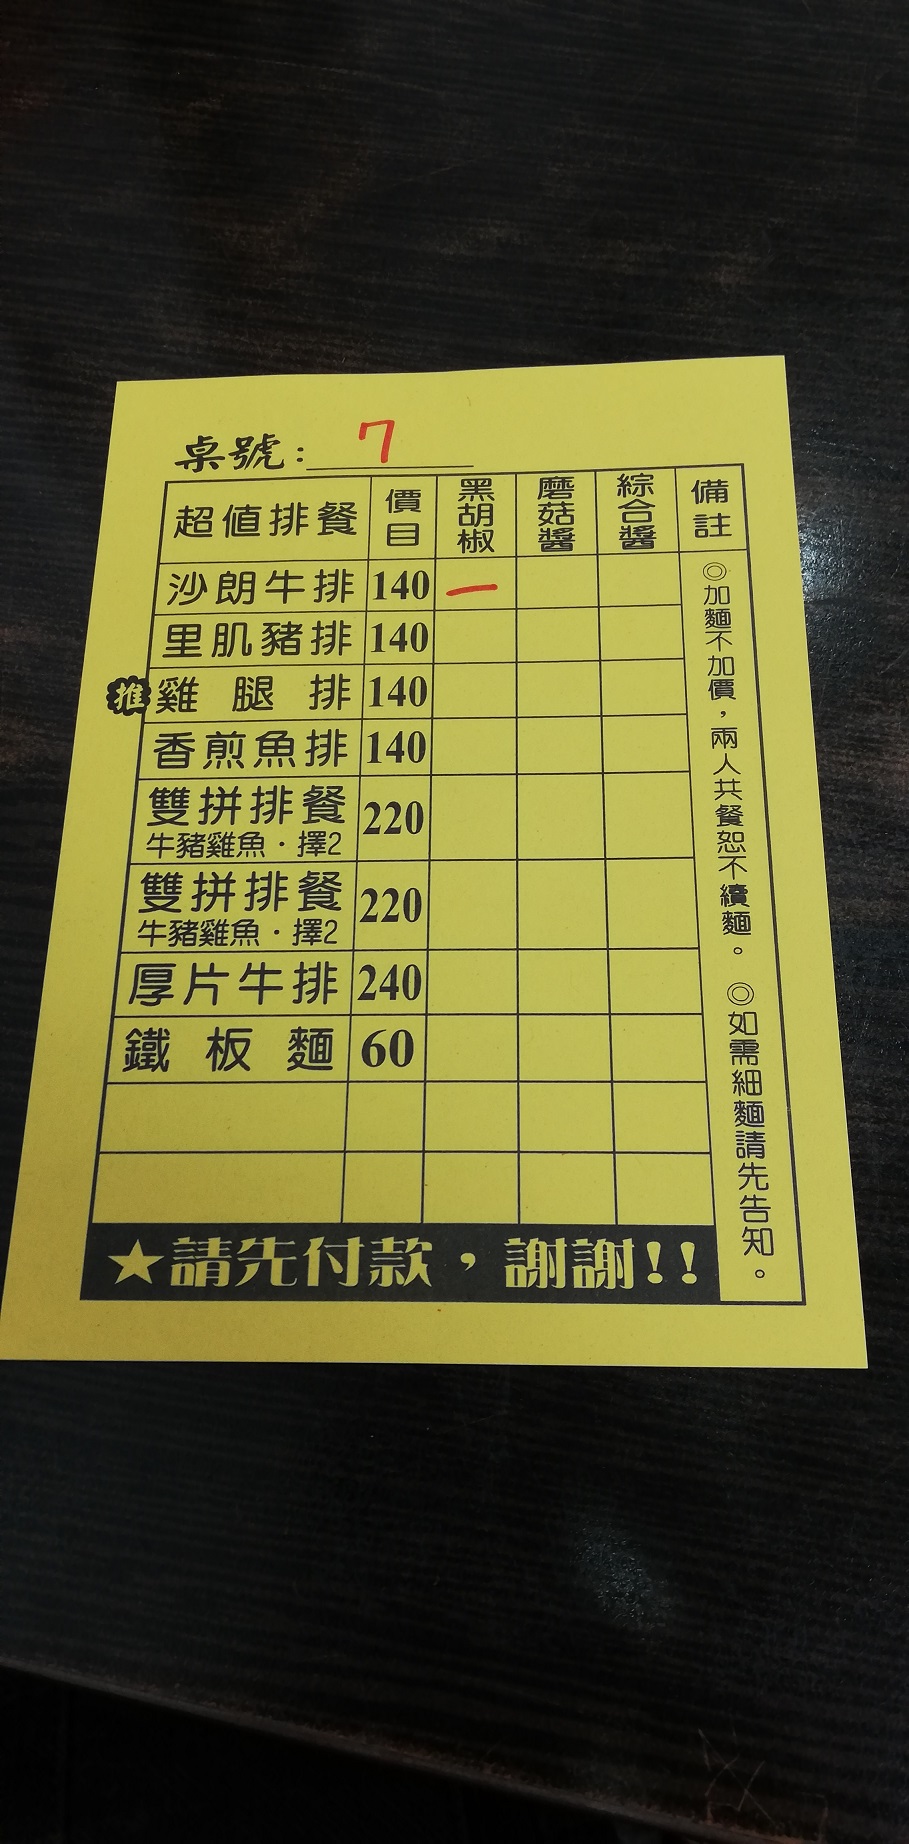 桌號: 7
超值排餐 價目 黑胡椒 蘑菇醬 綜合醬 備註
沙朗牛排 140 一
里肌豬排 140
推 雞腿排 140
香煎魚排 140
雙拼排餐 220
牛豬雞魚·擇2
雙拼排餐 220
牛豬雞魚·擇2
厚片牛排 240
鐵板麵 60
◎加麵不加價，兩人共餐恕不續麵。◎如需細麵請先告知。
★請先付款，謝謝!!